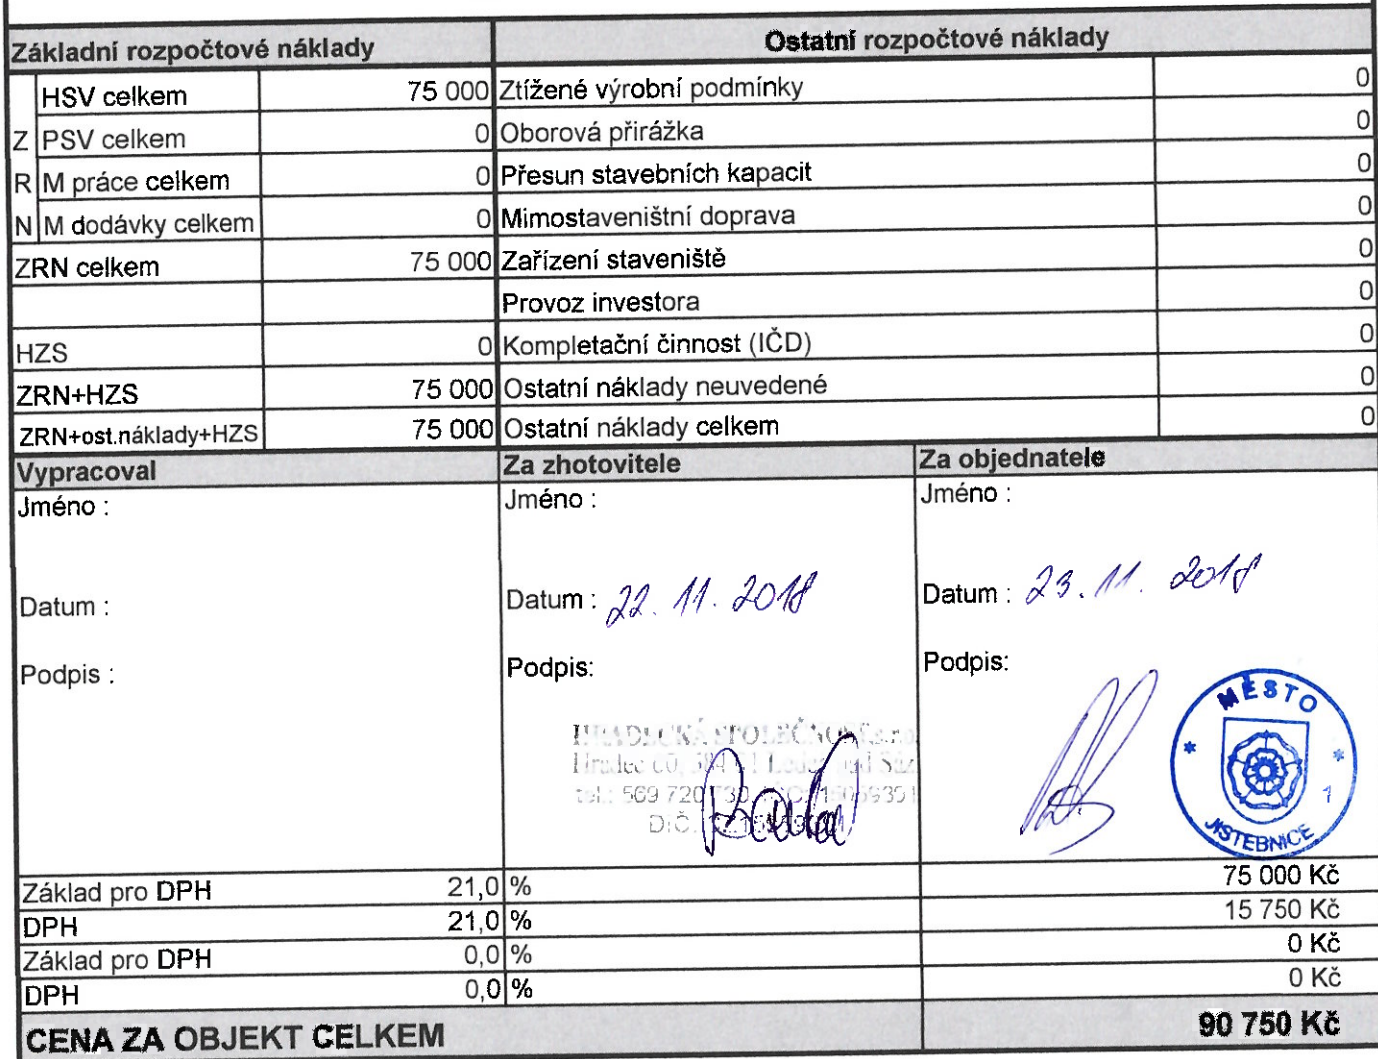 Základní rozpočtové náklady Ostatní rozpočtové náklady
HSV celkem 75 000 Ztížené výrobní podmínky 0
Z PSV celkem 0 Oborová přirážka 0
R M práce celkem 0 Přesun stavebních kapacit 0
N M dodávky celkem 0 Mimostaveništní doprava 0
ZRN celkem 75 000 Zařízení staveniště 0
Provoz investora 0
HZS 0 Kompletační činnost (IČD) 0
ZRN+HZS 75 000 Ostatní náklady neuvedené 0
ZRN+ost.náklady+HZS 75 000 Ostatní náklady celkem 0
Vypracoval Za zhotovitele Za objednatele
Jméno : Jméno : Jméno :
Datum : Datum : 22. 11. 2018 Datum : 23. 11. 2018
Podpis : Podpis: Podpis:
MĚSTO
HRADECKÁ SPOLEČNOST s.r.o.
Hradec 60, 584 01 Ledeč nad Sáz
tel.: 569 720 730
DIČ
1
JISTEBNICE
Základ pro DPH 21,0 % 75 000 Kč
DPH 21,0 % 15 750 Kč
Základ pro DPH 0,0 % 0 Kč
DPH 0,0 % 0 Kč
CENA ZA OBJEKT CELKEM 90 750 Kč